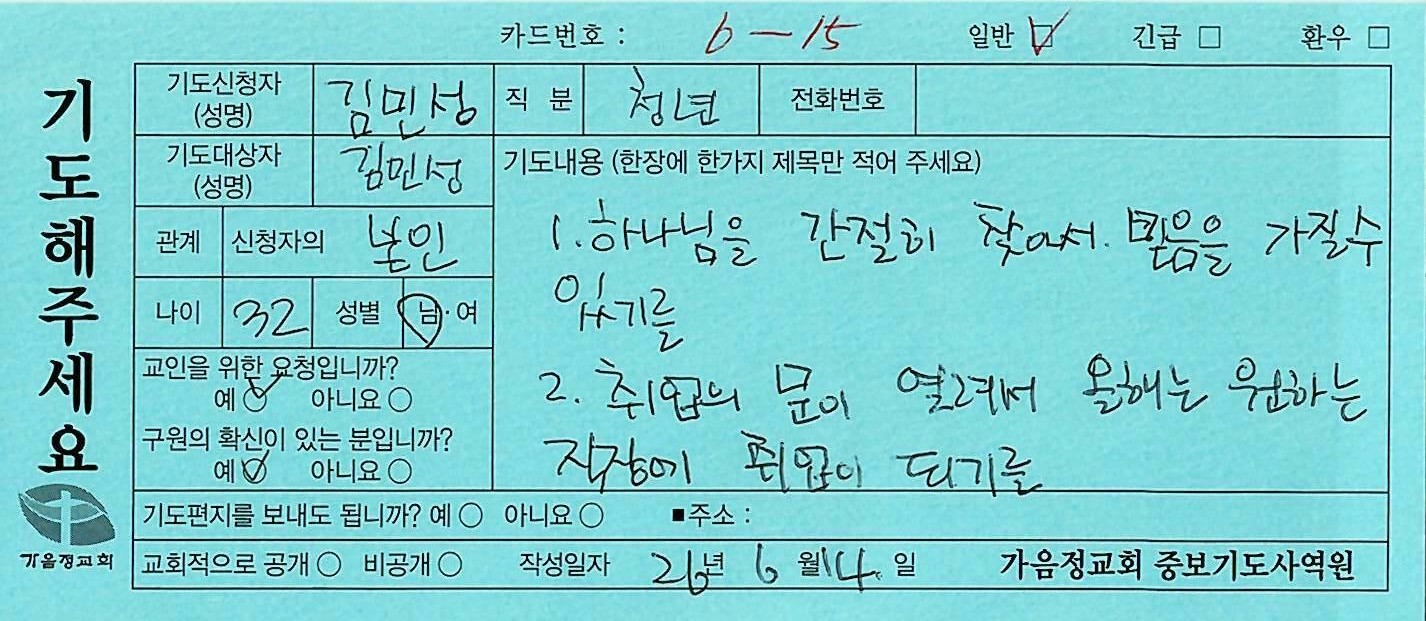 카드번호 : 6-15 일반 ☑ 긴급 □ 환우 □
기도해주세요
기도신청자 (성명) 김민성 직 분 청년 전화번호
기도대상자 (성명) 김민성 기도내용 (한장에 한가지 제목만 적어 주세요)
관계 신청자의 본인
나이 32 성별 남·여
1. 하나님을 간절히 찾아서. 믿음을 가질수
있기를
2. 취업의 문이 열려서 올해는 원하는
직장에 취업이 되기를
교인을 위한 요청입니까?
예 ☑ 아니요 ○
구원의 확신이 있는 분입니까?
예 ☑ 아니요 ○
기도편지를 보내도 됩니까? 예 ○ 아니요 ○ ■주소 :
교회적으로 공개 ○ 비공개 ○ 작성일자 26년 6월 14일 가음정교회 중보기도사역원
가음정교회